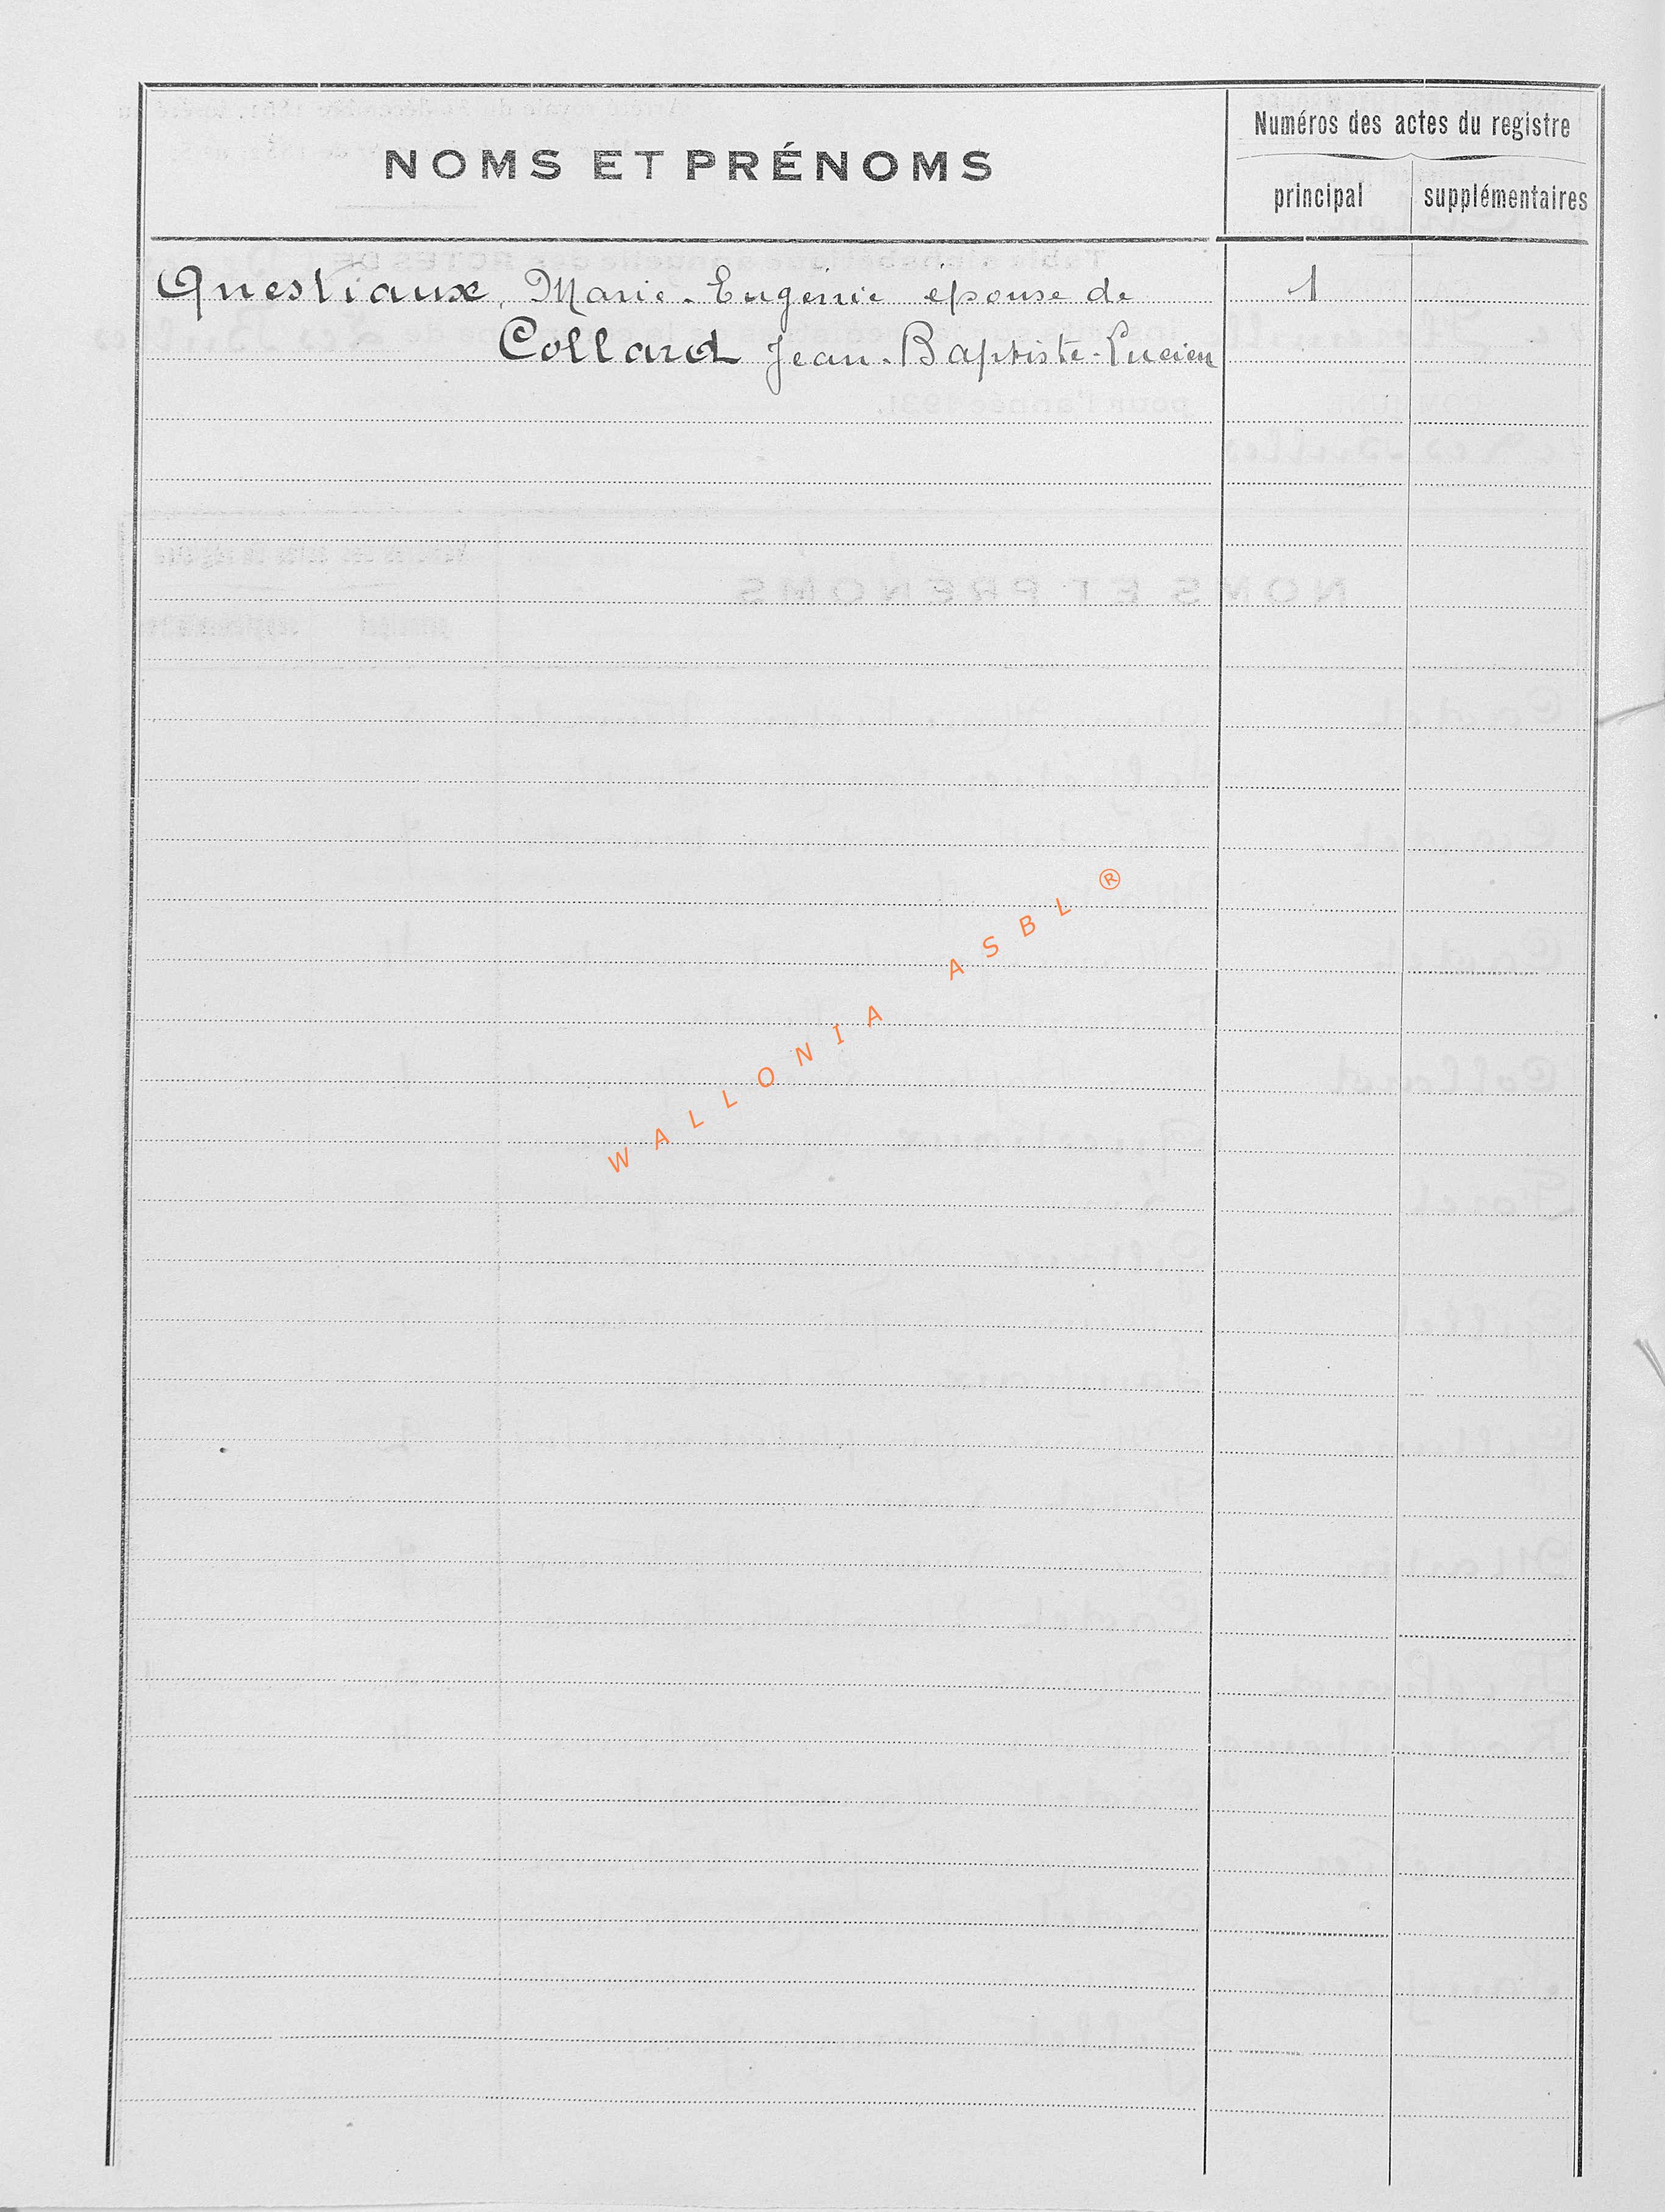 NOMS ET PRÉNOMS
Numéros des actes du registre
principal
supplémentaires
Questiaux, Marie-Eugénie épouse de 1
Collard Jean-Baptiste-Lucien
WALLONIA ASBL ®